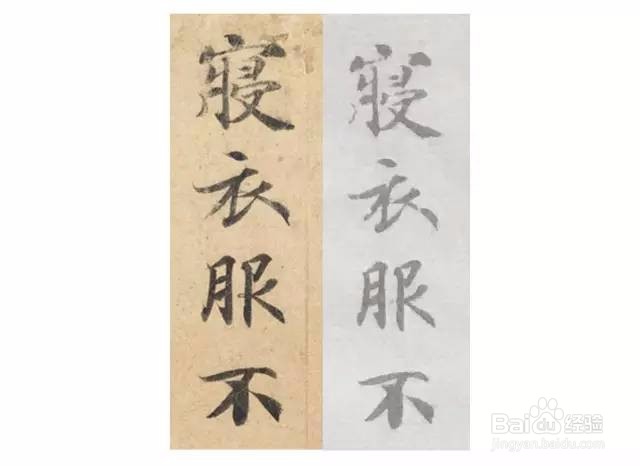 寢衣服不
寢衣服不
Baidu经验
jingyan.baidu.com